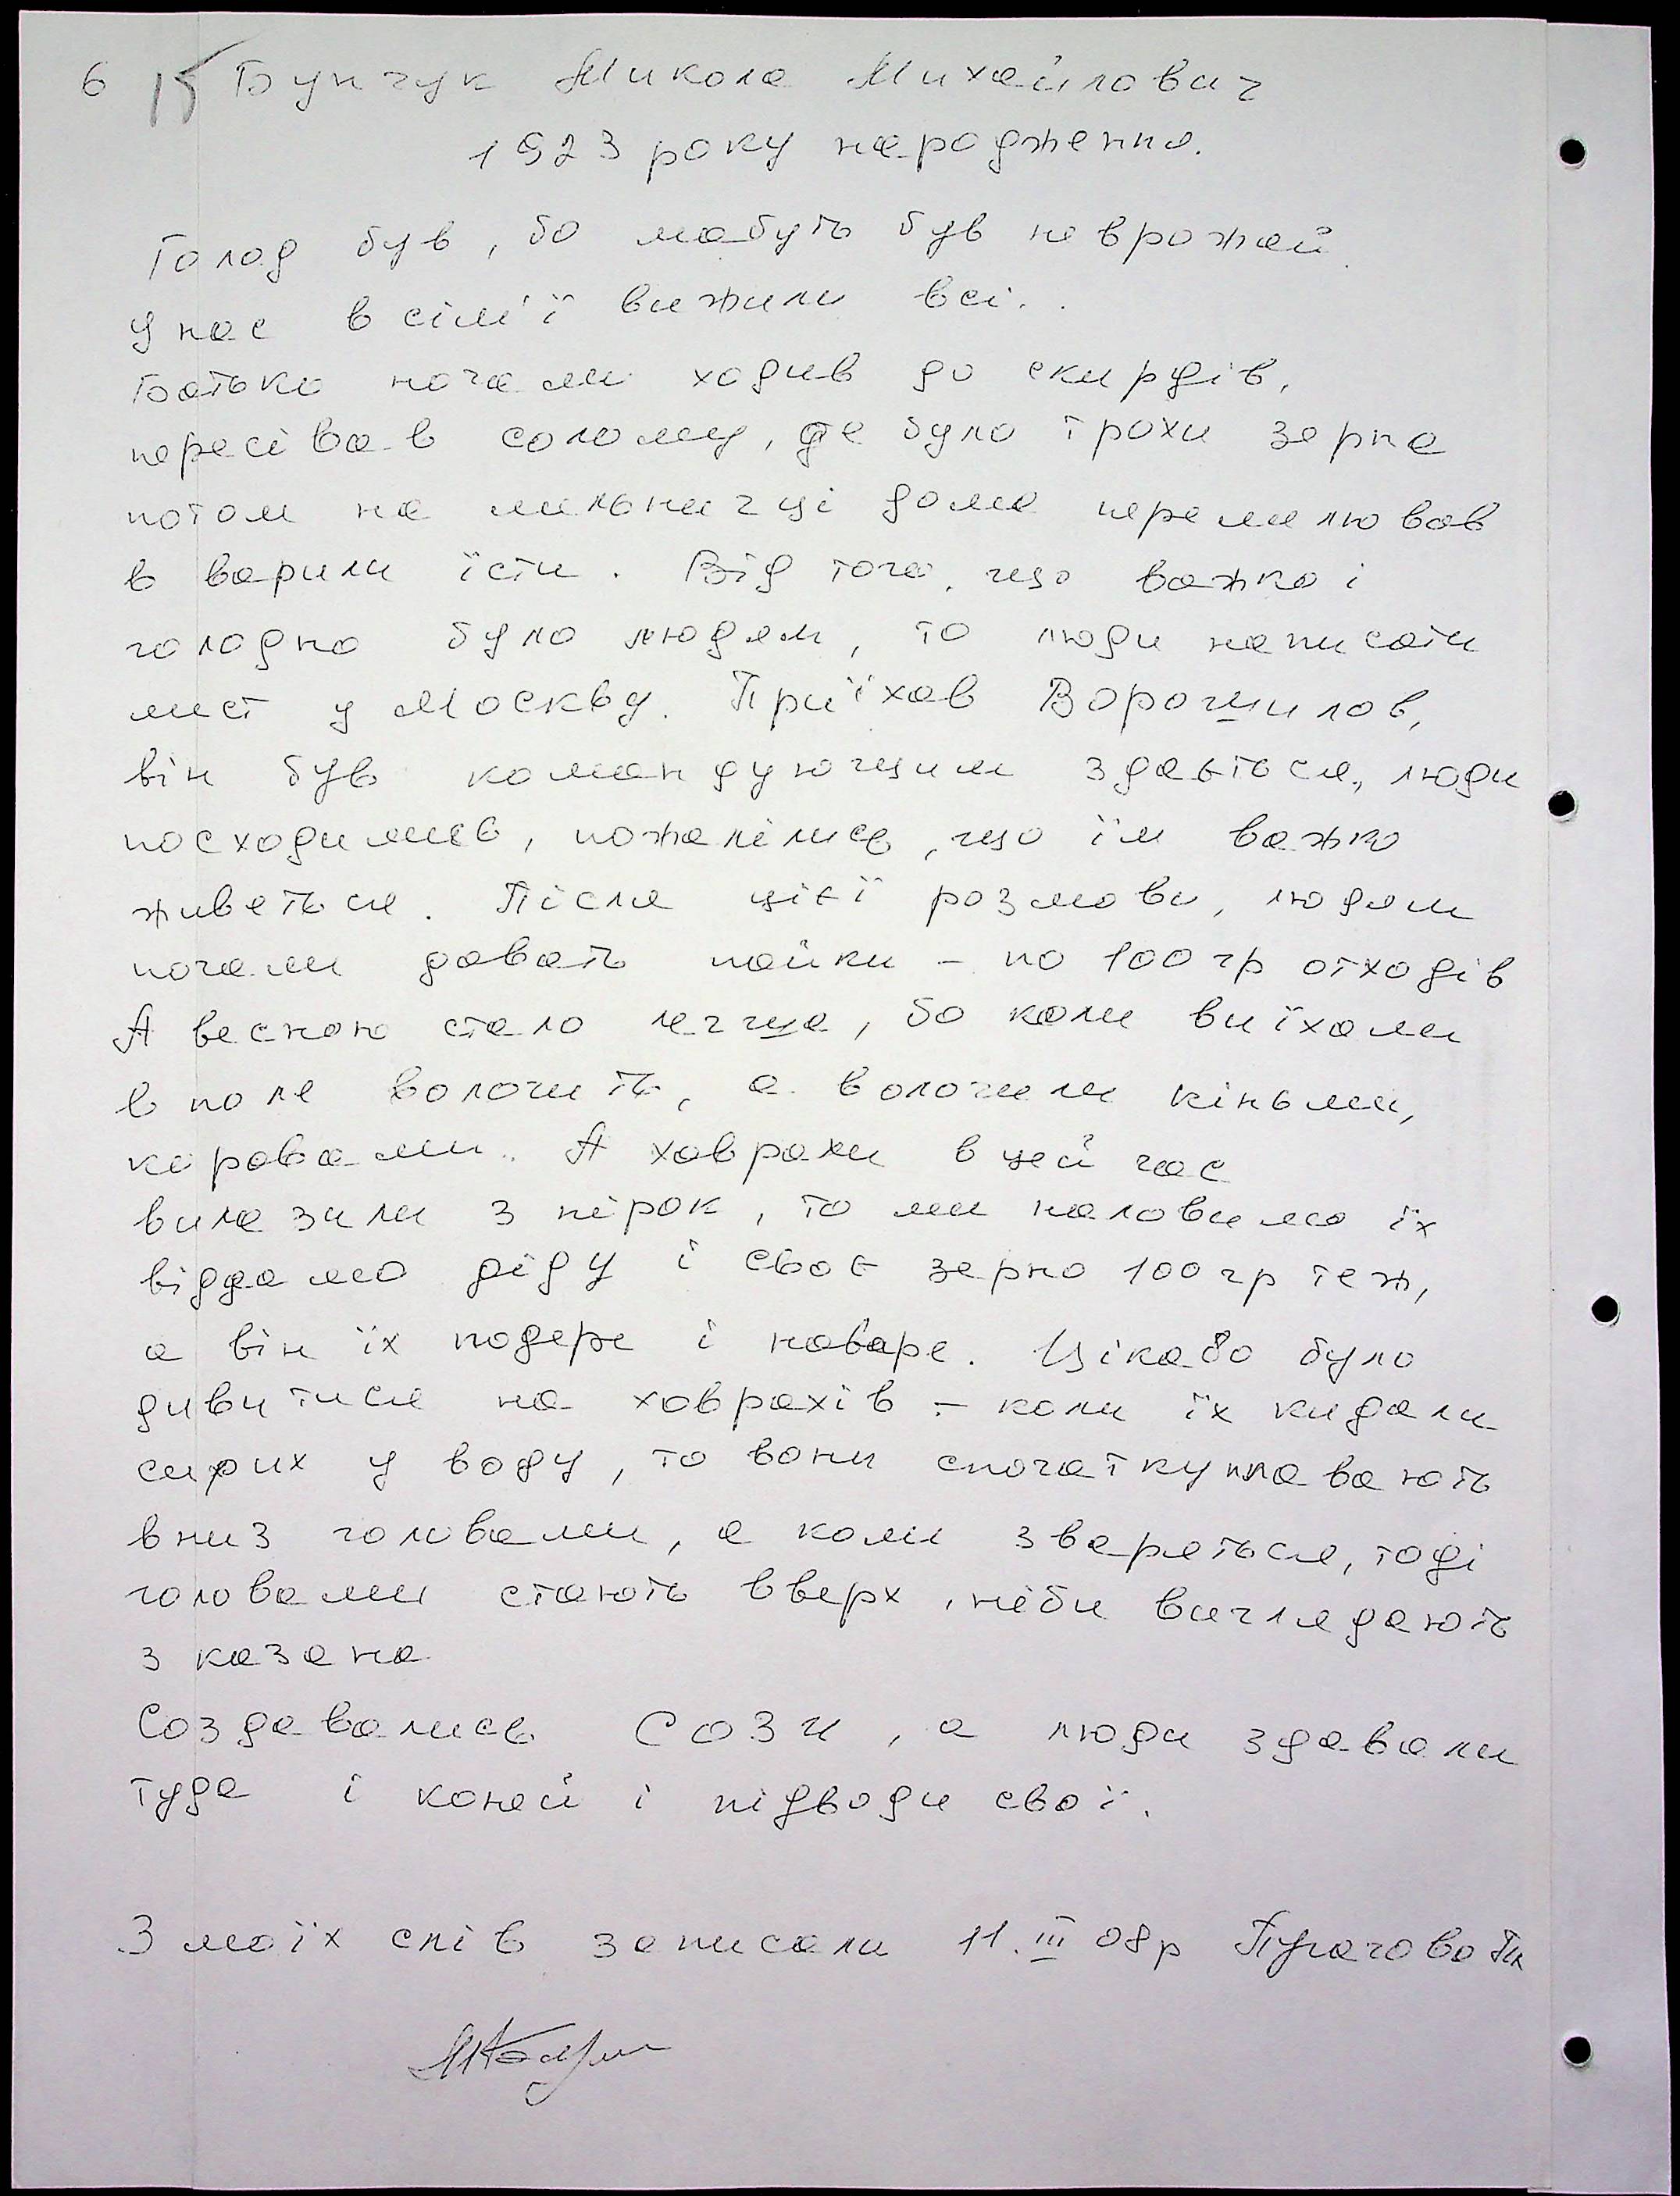 6 15 Бунчук Микола Михайлович
1923 року народження.
Голод був, бо мабуть був неврожай.
У нас в сім'ї вижили всі.
Батько ночами ходив до скирдів,
пересівав солому, де було трохи зерна
потом на мильничці дома перемилював
в варили їсти. Від того, що важко і
голодно було людям, то люди написати
лист у Москву. Приїхав Ворошилов,
він був командуючим здається, люди
посходились, пожалілись, що їм важко
живеться. Після цієї розмови, людям
почали давать пайки - по 100 гр отходів
А весною стало легше, бо коли виїхали
в поле волочить, а волочили кіньми,
коровами. А ховрахи в цей час
вилазили з нірок, то ми наловимо їх
віддамо діду і своє зерно 100 гр теж,
а він їх подере і наваре. Цікаво було
дивитися на ховрахів - коли їх кидали
сирих у воду, то вони спочатку плавають
вниз головами, а коли зваряться, тоді
головами стають вверх, ніби виглядають
з казана
Создавались СОЗи, а люди здавали
туда і коней і підводи свої.
З моїх слів записали 11.III 08р